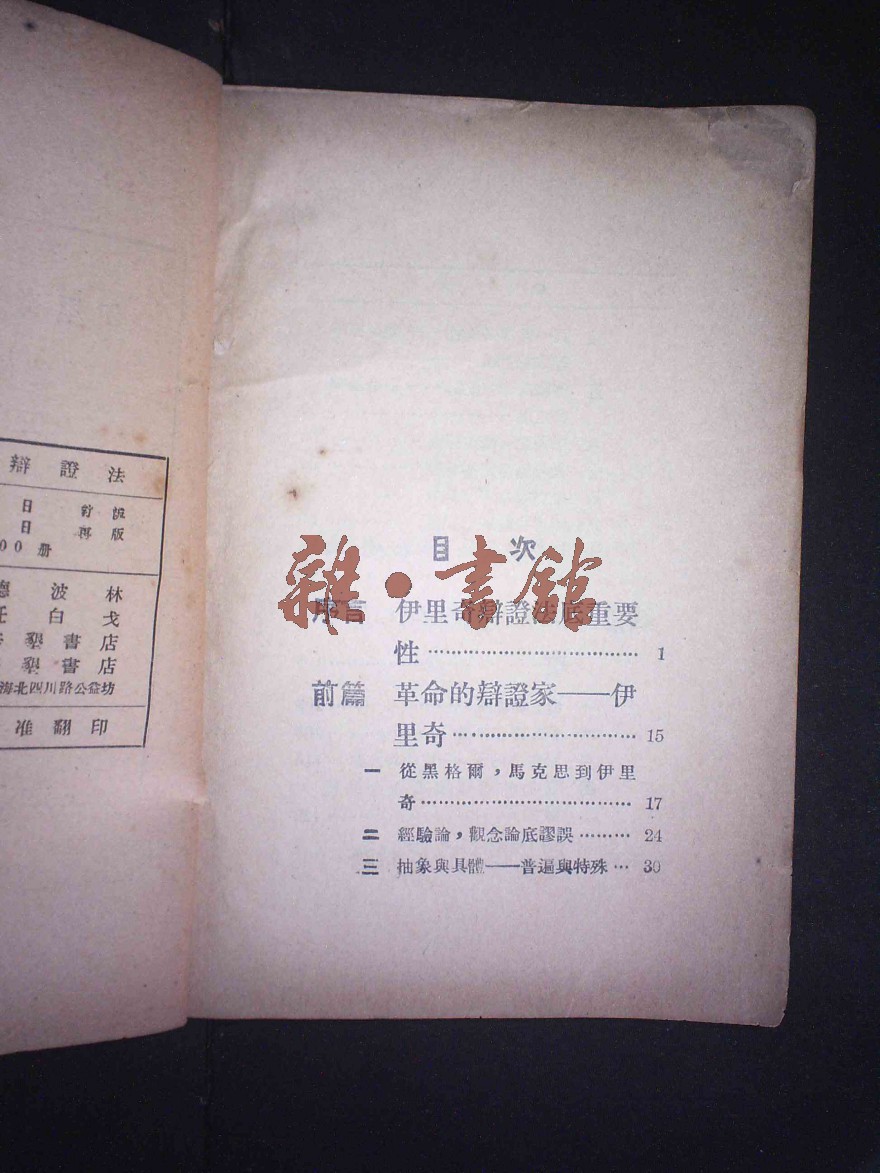 辯證法
日 付 版
日 再 版
00 册
德波林
任白戈
墾書店
墾書店
海北四川路公益坊
准翻印
目次
雜·書館
序言 伊里奇辯證法底重要
性……………………………… 1
前篇 革命的辯證家——伊
里奇…………………………… 15
一 從黑格爾，馬克思到伊里
奇……………………………… 17
二 經驗論，觀念論底謬誤……… 24
三 抽象與具體——普遍與特殊… 30